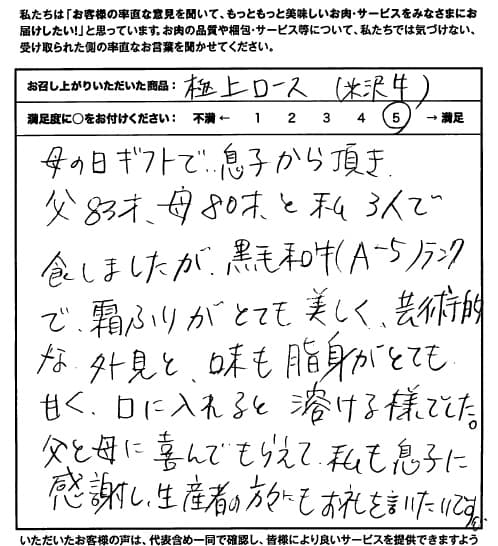 私たちは「お客様の率直な意見を聞いて、もっともっと美味しいお肉・サービスをみなさまにお
届けしたい！」と思っています。お肉の品質や梱包・サービス等について、私たちでは気づけない、
受け取られた側の率直なお言葉を聞かせてください。
お召し上がりいただいた商品： 極上ロース (米沢牛)
満足度に○をお付けください： 不満 ← 1 2 3 4 5 → 満足
母の日ギフトで、息子から頂き、
父83才、母80才、と私 3人で
食しましたが、黒毛和牛(A-5)ランク
で、霜ふりがとても美しく、芸術的
な外見と、味も脂身がとても
甘く、口に入れると溶ける様でした。
父と母に喜んでもらえて、私も息子に
感謝し、生産者の方々にもお礼を言いたいです。
いただいたお客様の声は、代表含め一同で確認し、皆様により良いサービスを提供できますよう